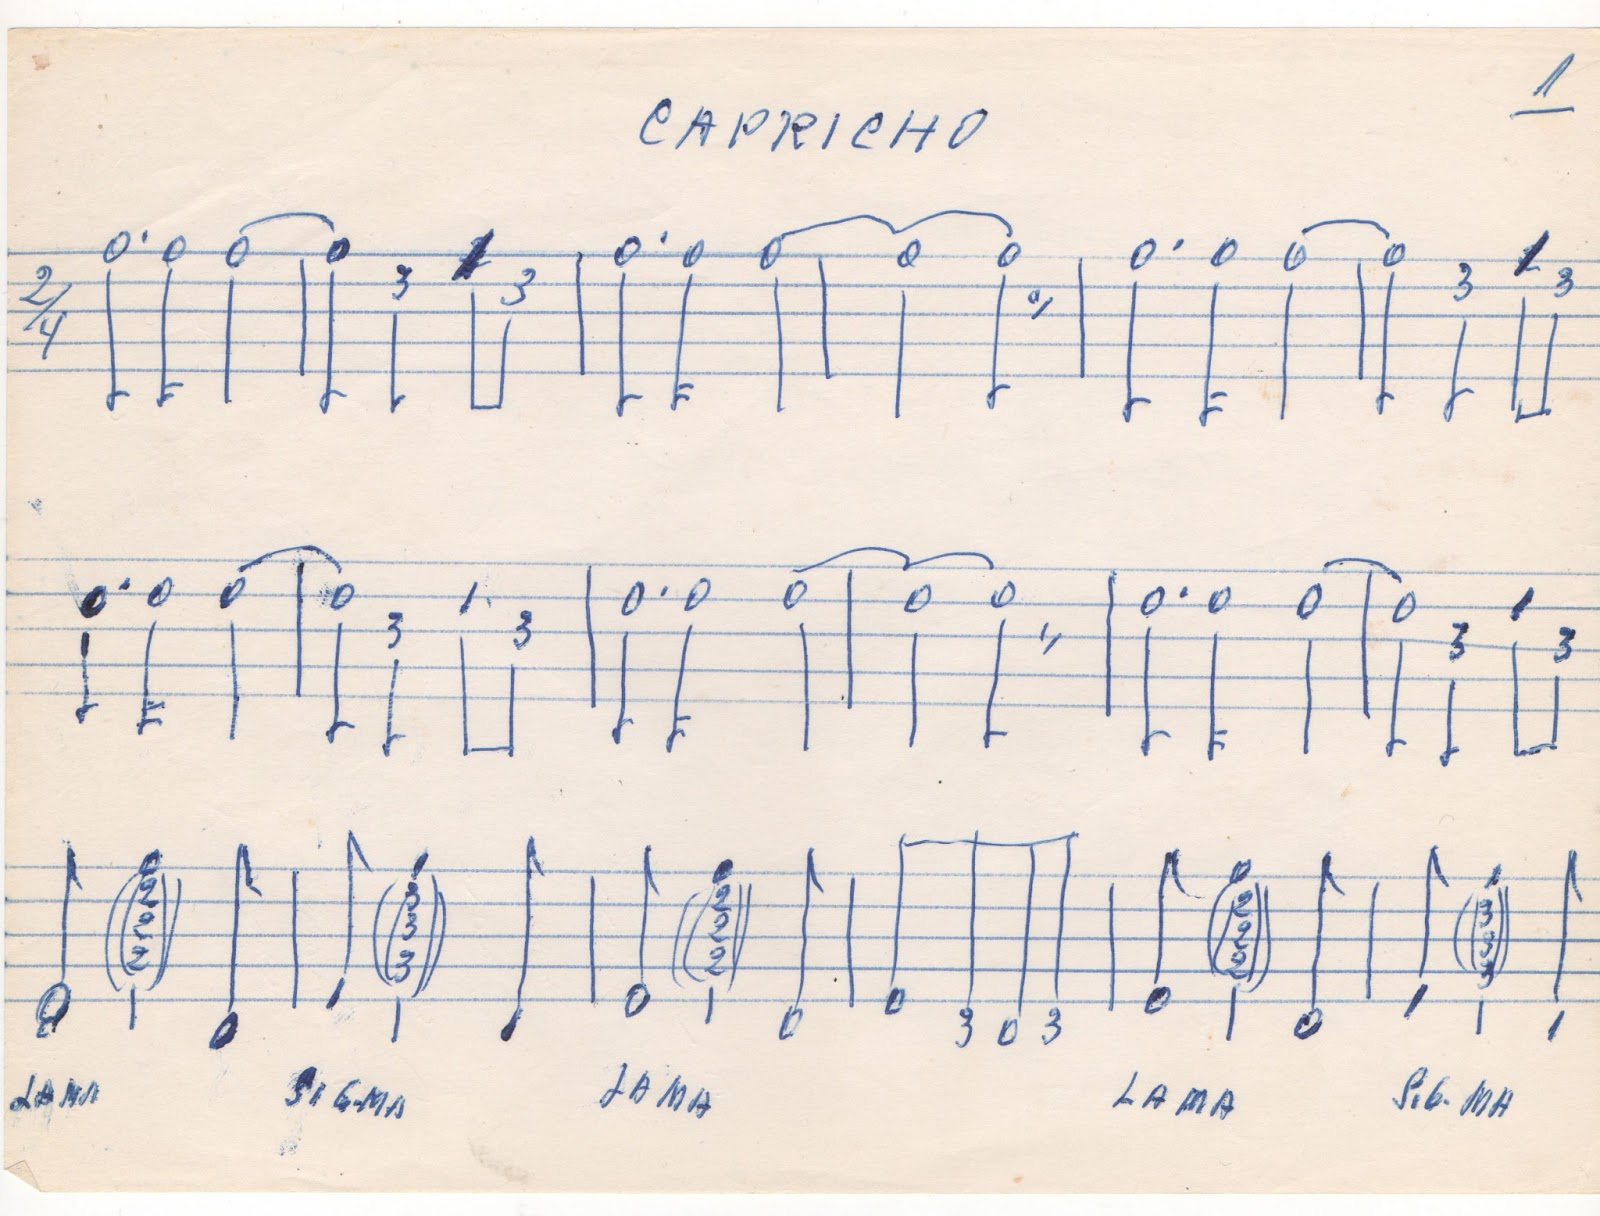 1
CAPRICHO
2/4
0. 0 0 0 3 1 3 0. 0 0 0 0 0. 0 0 0 3 1 3
0. 0 0 0 3 1 3 0. 0 0 0 0 0. 0 0 0 3 1 3
0 2 2 2
1 3 3 3
0 2 2 2
0 2 2 2
1 3 3 3
0 0 1 1 0 0 0 3 0 3 0 0 1 1
LAMA SIG-MA LAMA LAMA SIG-MA